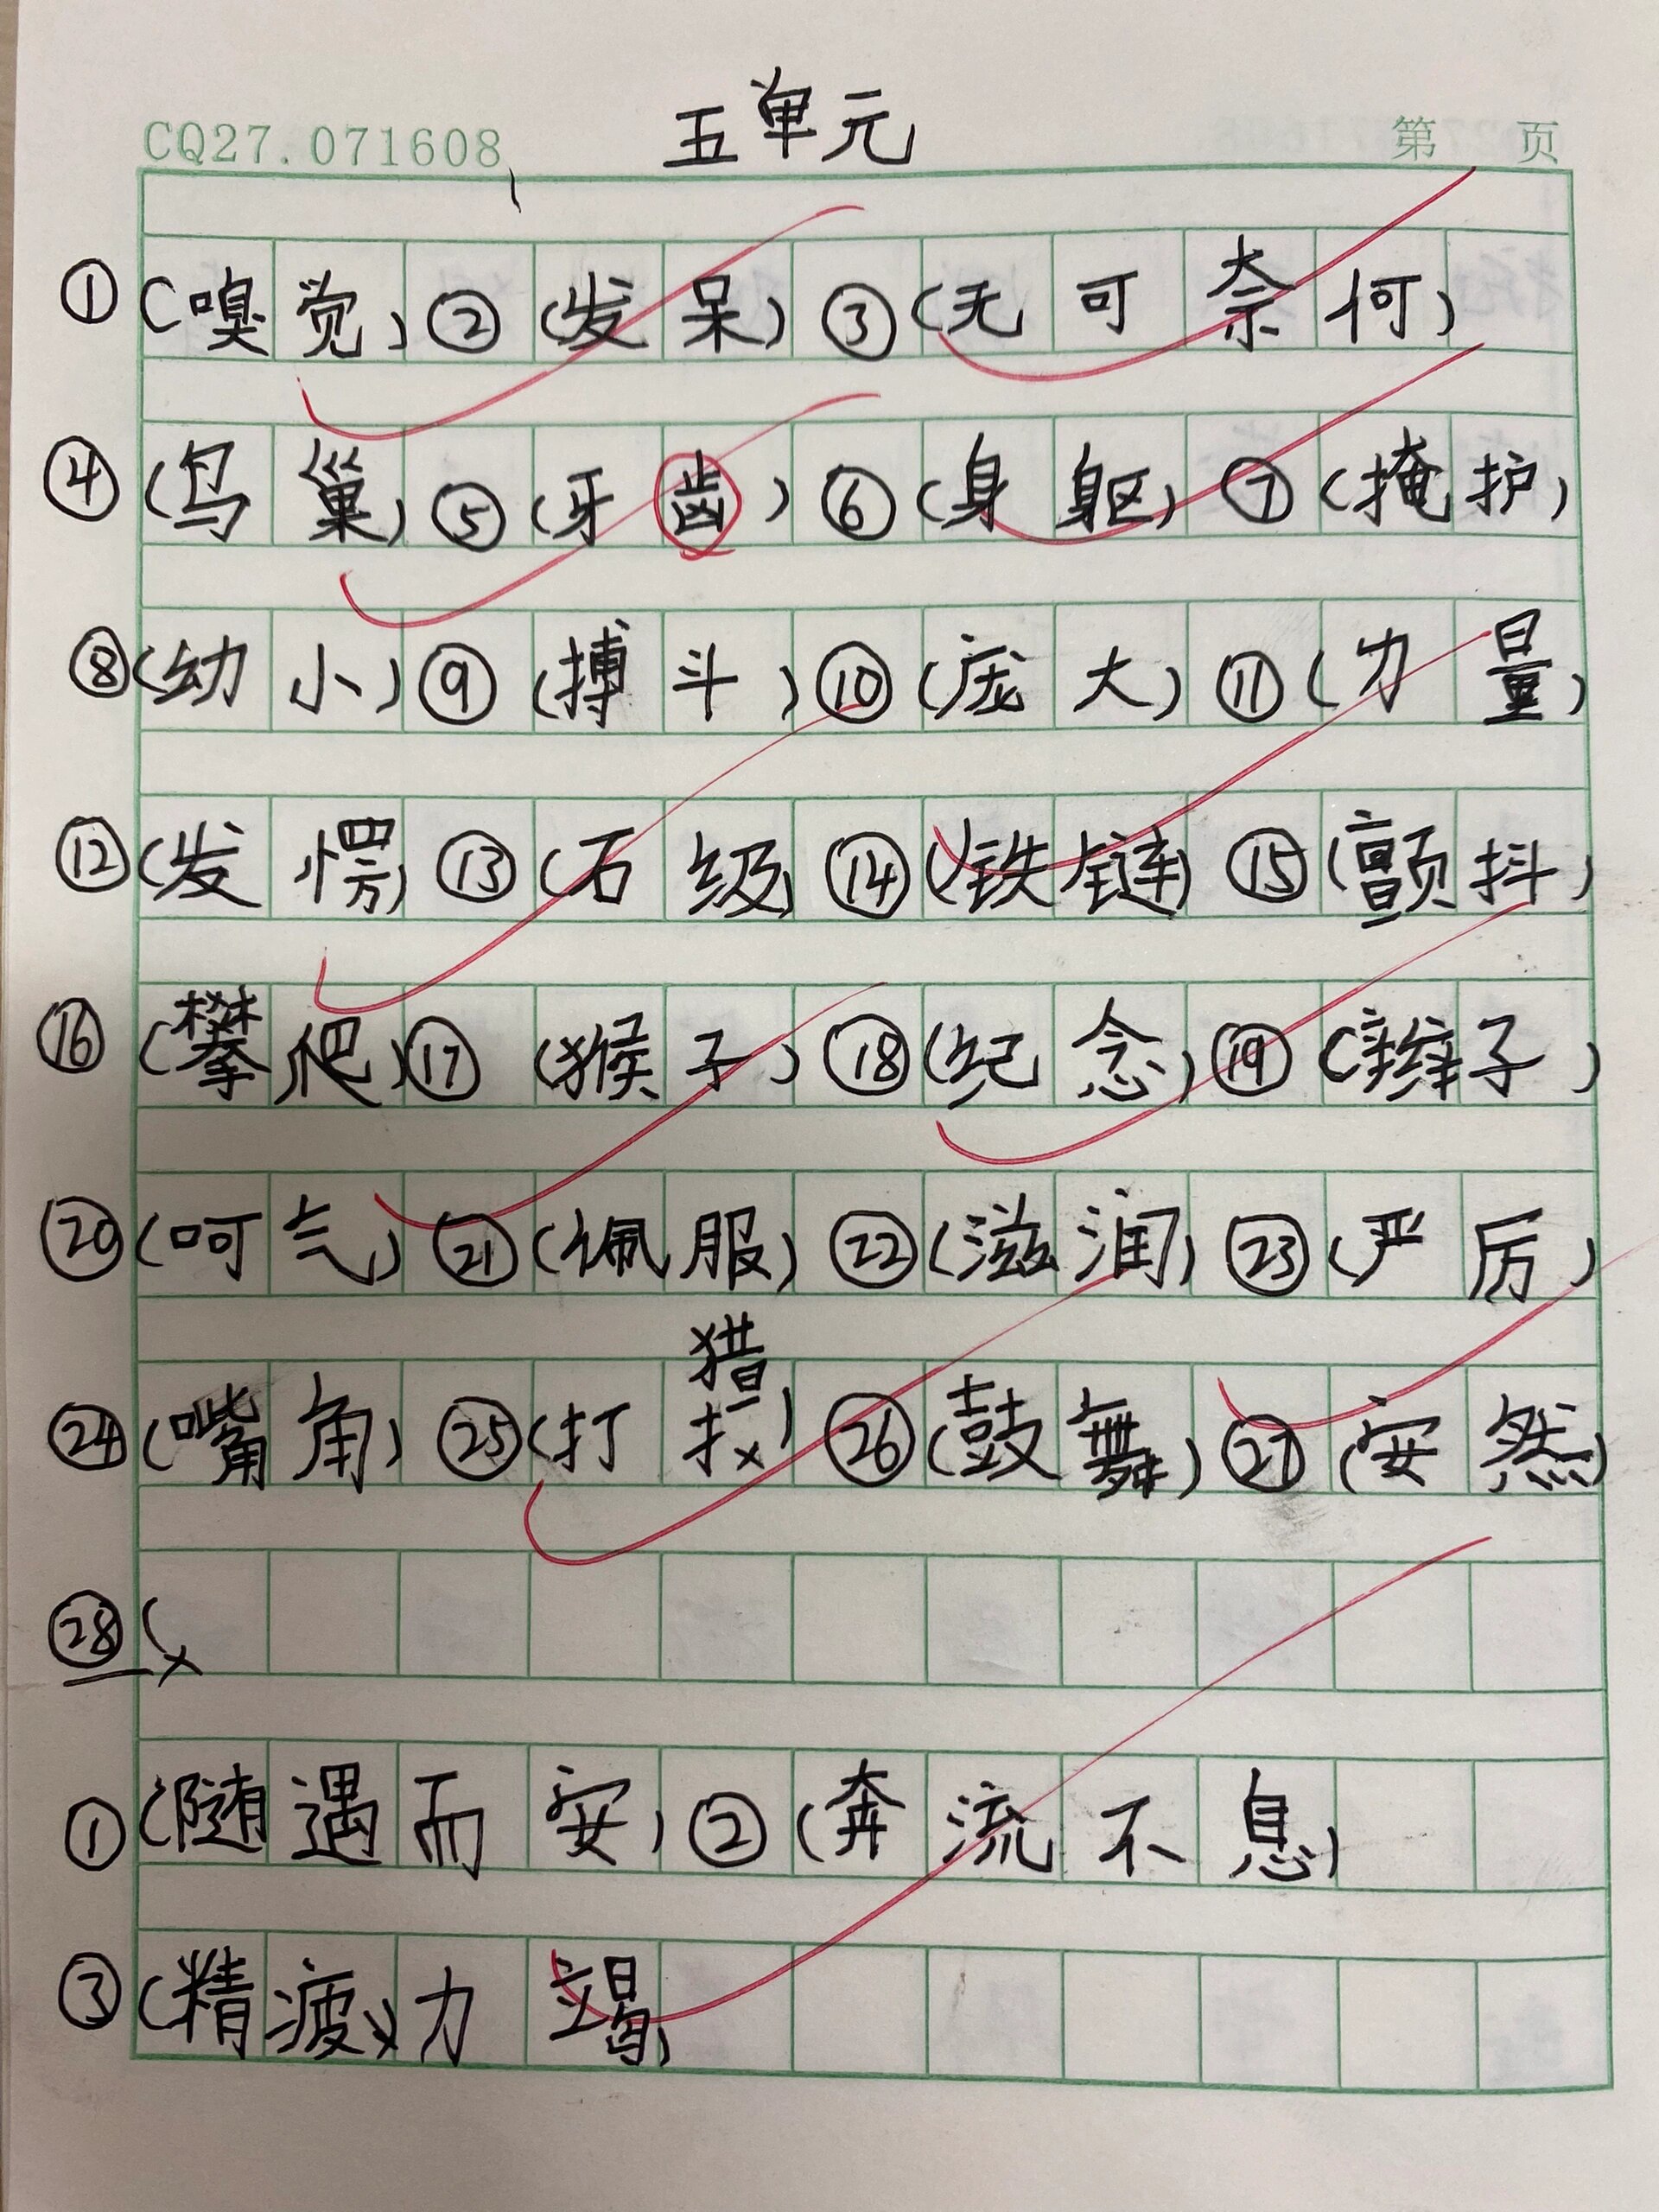 五单元
CQ27.071608 第 页
①(嗅觉)②(发呆)③(无可奈何)
④(鸟巢)⑤(牙齿)⑥(身躯)⑦(掩护)
⑧(幼小)⑨(搏斗)⑩(庞大)⑪(力量)
⑫(发愣)⑬(石级)⑭(铁链)⑮(颤抖)
⑯(攀爬)⑰(猴子)⑱(纪念)⑲(辫子)
⑳(呵气)㉑(佩服)㉒(滋润)㉓(严厉)
㉔(嘴角)㉕(打猎)㉖(鼓舞)㉗(安然)
㉘(
①(随遇而安)②(奔流不息)
③(精疲力竭)